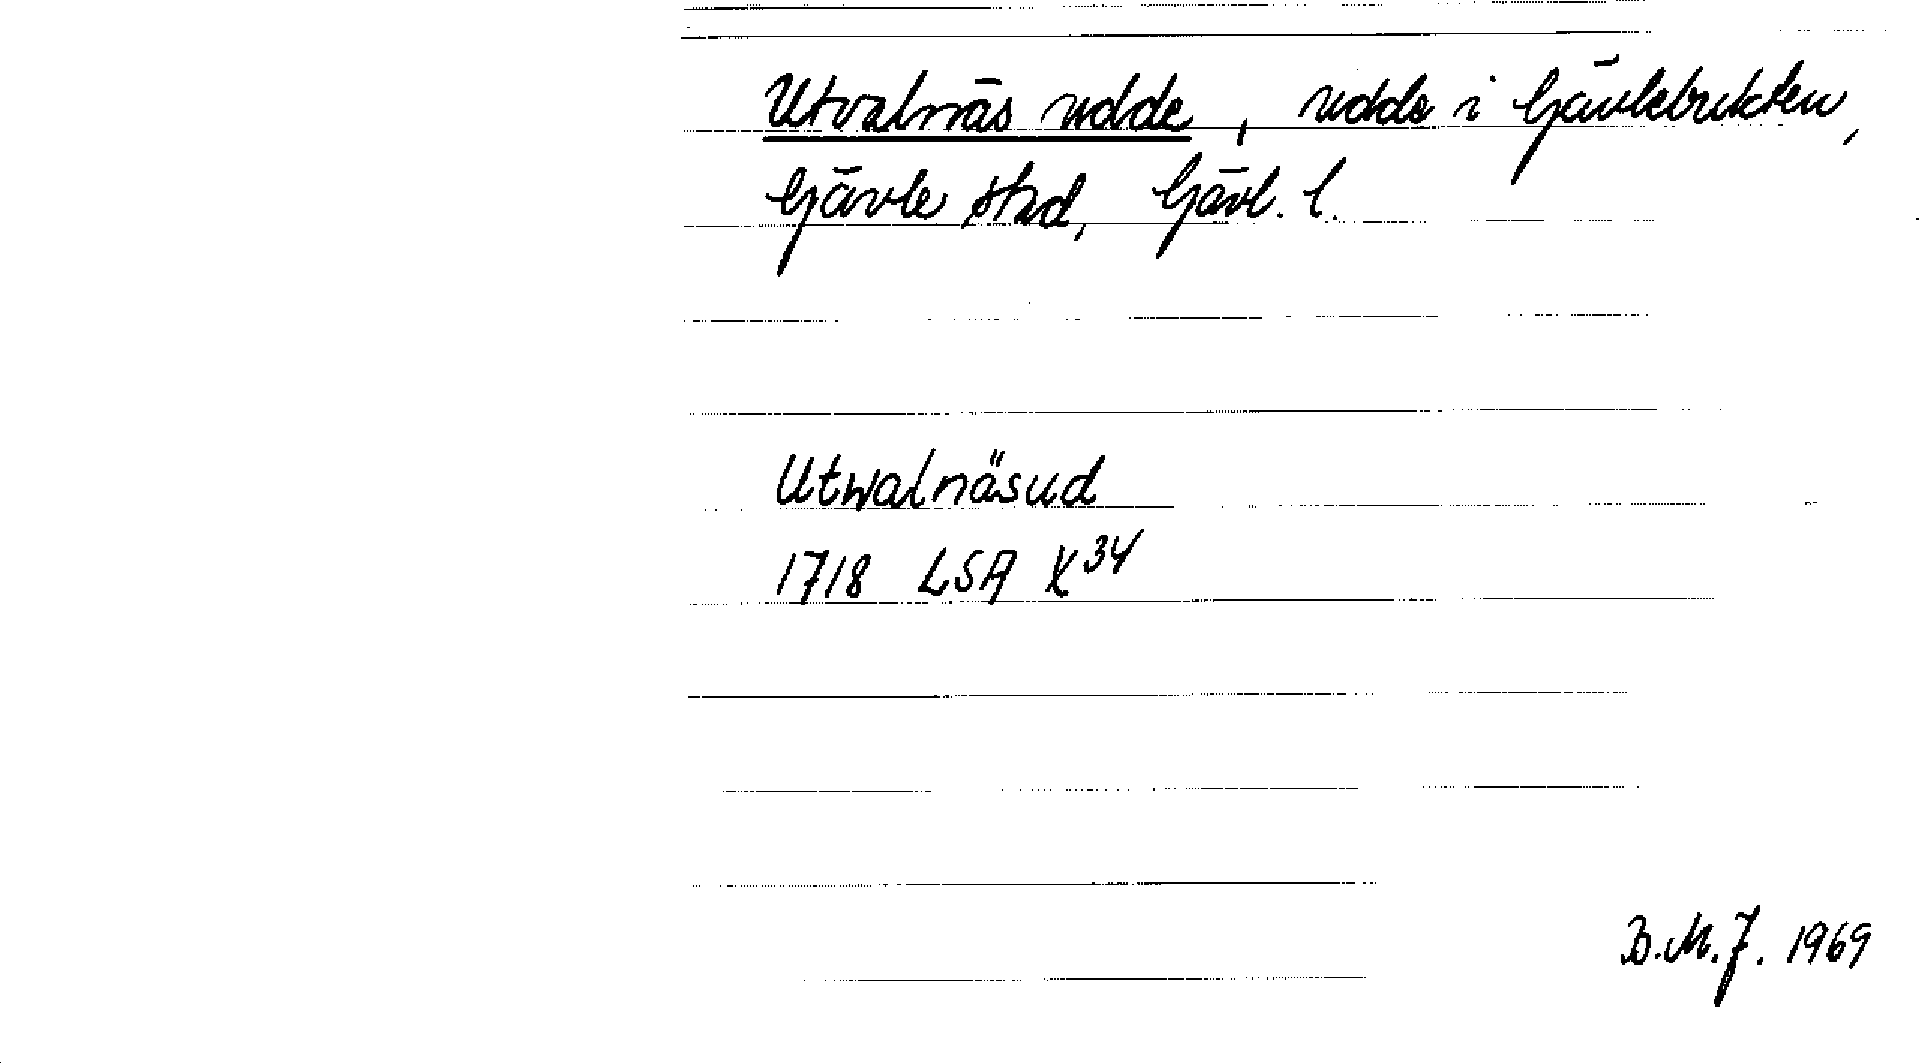 Utvalnäs udde, udde i Gävlebukten,
Gävle stad, Gävl. l.
Utwalnäsud
1718 LSA X34
B.M.J. 1969